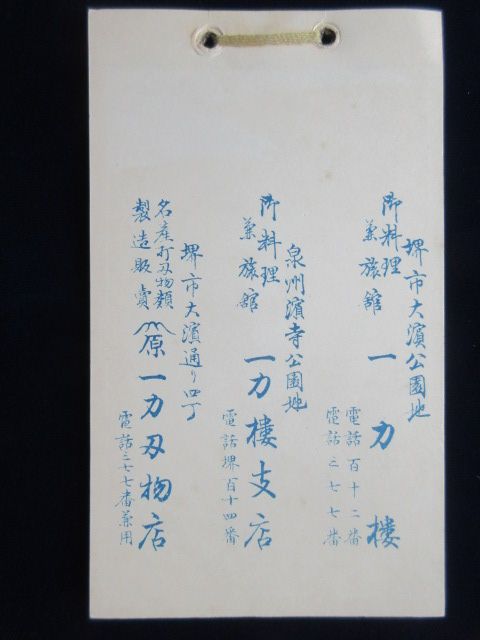 堺市大濱公園地
御料理
兼旅館
一力樓
電話百十二番
電話三七七番
泉州濱寺公園地
御料理
兼旅館
一力樓支店
電話堺百十四番
堺市大濱通り四丁
名産打刃物類
製造販賣
原
一力刃物店
電話三七七番兼用